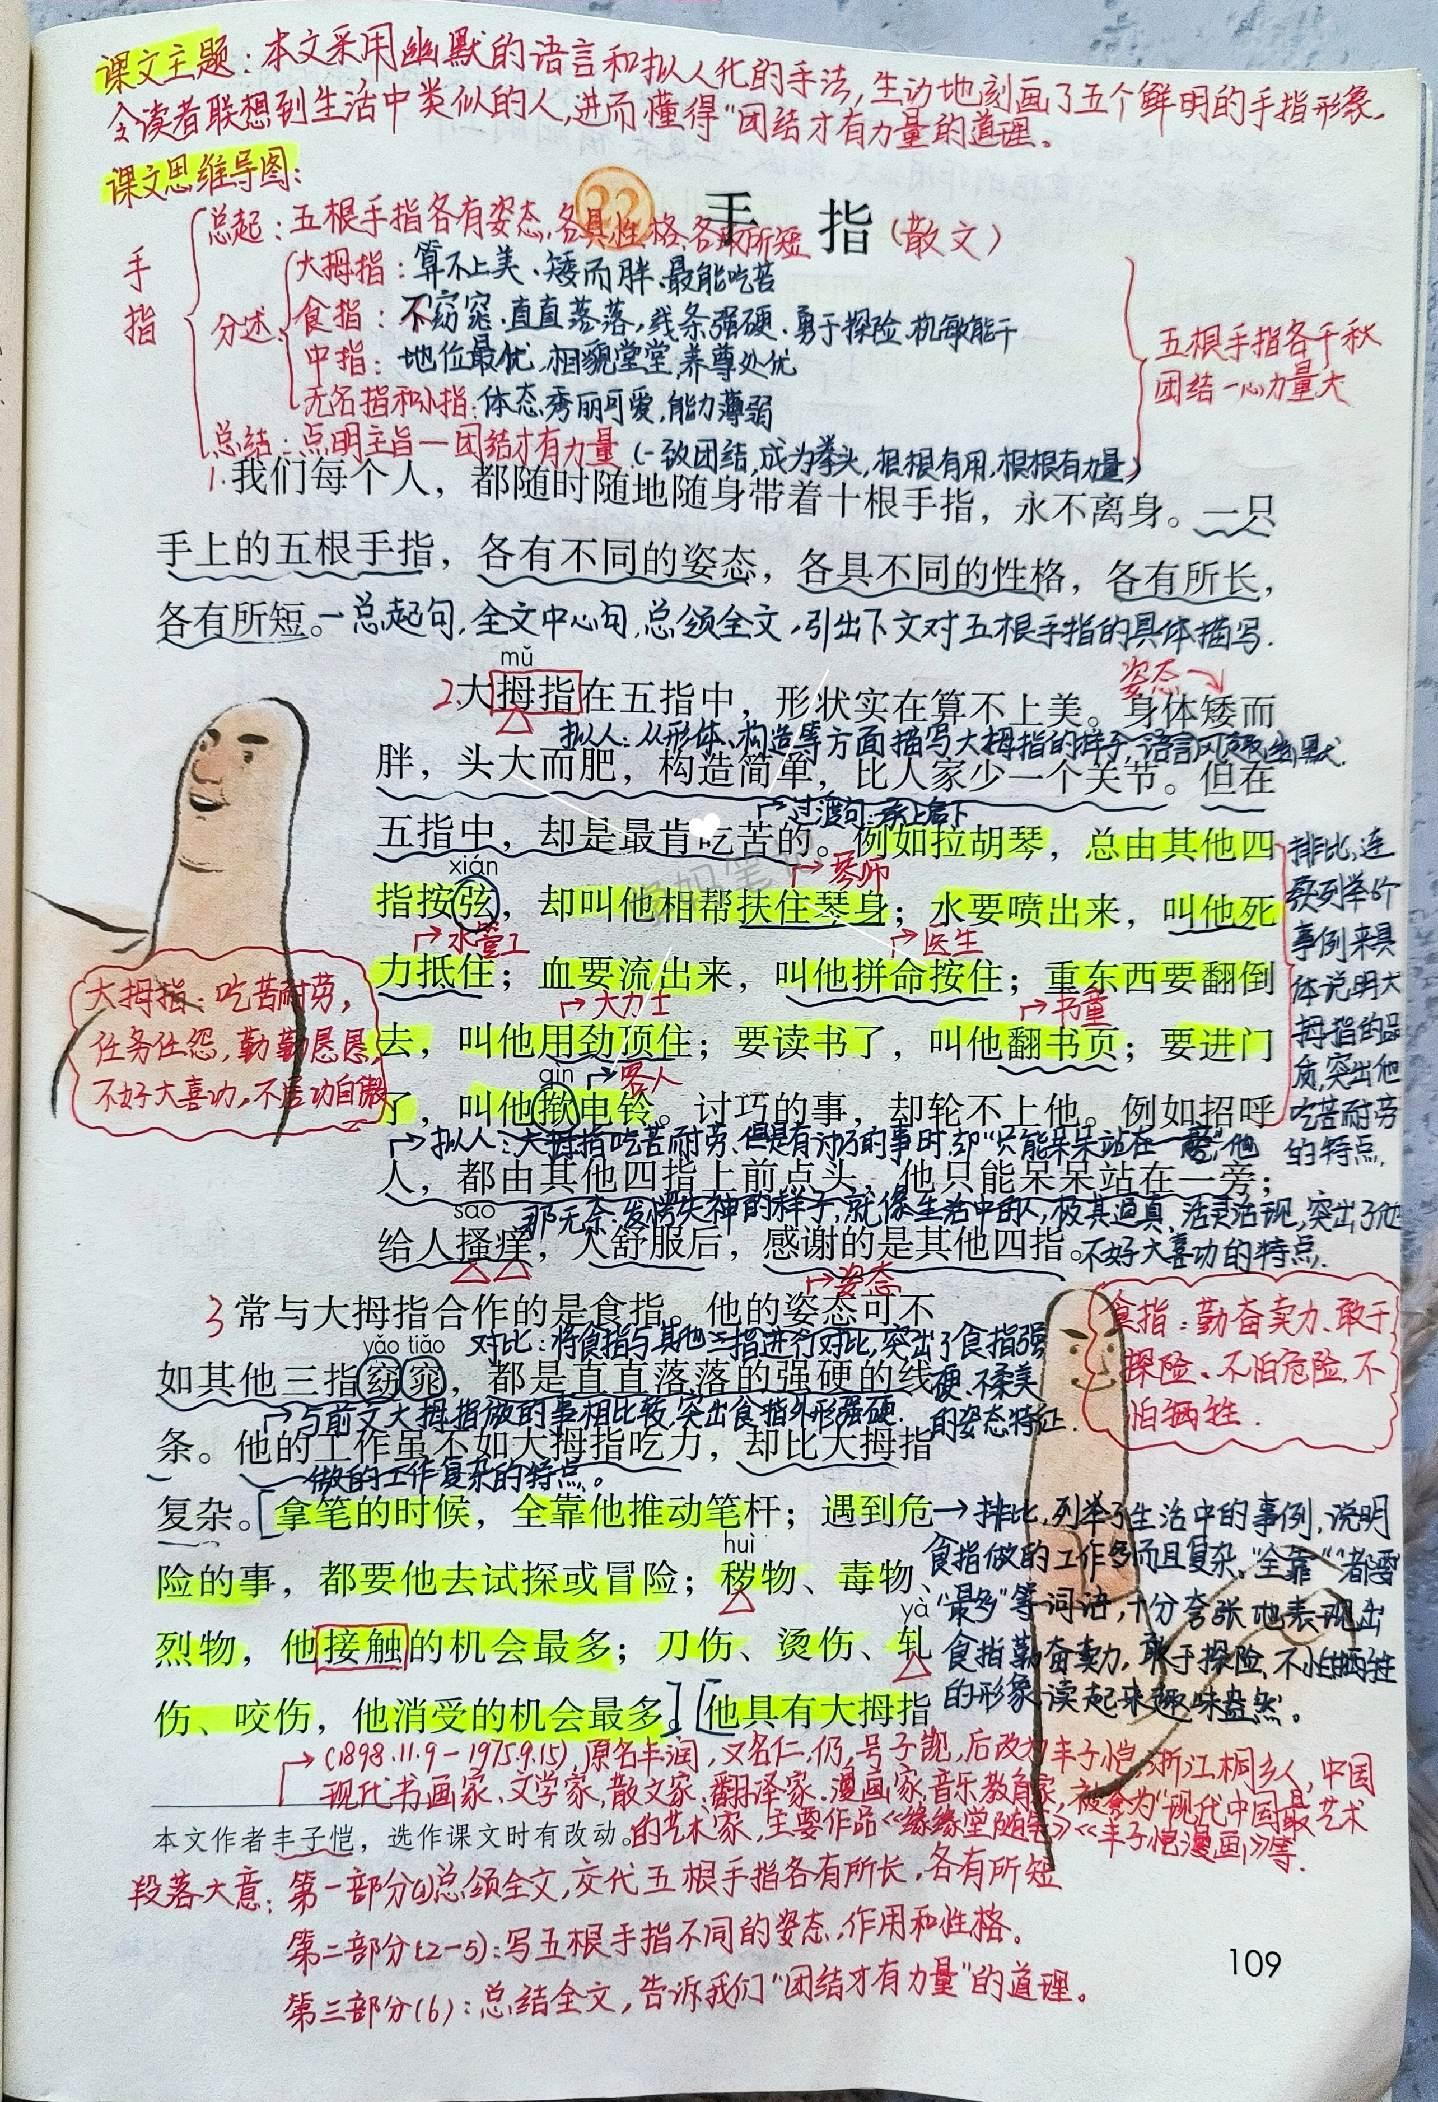 课文主题：本文采用幽默的语言和拟人化的手法，生动地刻画了五个鲜明的手指形象，
令读者联想到生活中类似的人，进而懂得"团结才有力量的道理。
课文思维导图：
22 手指（散文）
手指
总起：五根手指各有姿态，各具性格，各有所短
分述
大拇指：算不上美、矮而胖、最能吃苦
食指：不窈窕、直直落落，线条强硬、勇于探险、机敏能干
中指：地位最优、相貌堂堂，养尊处优
无名指和小指：体态秀丽可爱，能力薄弱
总结：点明主旨一团结才有力量（一致团结，成为拳头，根根有用，根根有力量）
五根手指各千秋
团结一心力量大
1.我们每个人，都随时随地随身带着十根手指，永不离身。一只
手上的五根手指，各有不同的姿态，各具不同的性格，各有所长，
各有所短。一总起句，全文中心句，总领全文，引出下文对五根手指的具体描写.
mǔ
姿态
2.大拇指在五指中，形状实在算不上美。身体矮而
拟人：从形体、构造等方面描写大拇指的样子，语言风趣幽默.
胖，头大而肥，构造简单，比人家少一个关节。但在
过渡句：承上启下
五指中，却是最肯吃苦的。例如拉胡琴，总由其他四
xián
琴师
指按弦，却叫他相帮扶住琴身；水要喷出来，叫他死
水管工
医生
力抵住；血要流出来，叫他拼命按住；重东西要翻倒
大力士
书童
去，叫他用劲顶住；要读书了，叫他翻书页；要进门
qìn
客人
了，叫他揿电铃。讨巧的事，却轮不上他。例如招呼
拟人：大拇指吃苦耐劳，但是有讨巧的事时却"只能呆呆站在一旁"，他
人，都由其他四指上前点头，他只能呆呆站在一旁；
sāo
那无奈、发愣失神的样子，就像生活中的人，极其逼真，活灵活现，突出了他
给人搔痒，人舒服后，感谢的是其他四指。
不好大喜功的特点.
排比，连
续列举价
事例来具
体说明大
拇指的品
质，突出他
吃苦耐劳
的特点.
大拇指：吃苦耐劳，
任劳任怨，勤勤恳恳，
不好大喜功，不居功自傲
姿态
3 常与大拇指合作的是食指。他的姿态可不
yǎo tiǎo
对比：将食指与其他三指进行对比，突出了食指强
硬、不柔美
的姿态特征.
如其他三指窈窕，都是直直落落的强硬的线
与前文大拇指做的事相比较，突出食指外形强硬.
条。他的工作虽不如大拇指吃力，却比大拇指
做的工作复杂的特点。
复杂。[拿笔的时候，全靠他推动笔杆；遇到危
huì
险的事，都要他去试探或冒险；秽物、毒物、
yà
烈物，他接触的机会最多；刀伤、烫伤、轧
伤、咬伤，他消受的机会最多。][他具有大拇指
食指：勤奋卖力、敢于
探险、不怕危险、不
怕牺牲.
排比，列举了生活中的事例，说明
食指做的工作多而且复杂。"全靠""都要
"最多"等词语，十分夸张地表现出
食指勤奋卖力，敢于探险、不怕牺牲
的形象，读起来趣味盎然。
(1898.11.9－1975.9.15)，原名丰润，又名仁、仍，号子觊，后改为丰子恺，浙江桐乡人，中国
现代书画家、文学家，散文家、翻译家、漫画家、音乐教育家，被誉为"现代中国最艺术
本文作者丰子恺，选作课文时有改动。的艺术家，主要作品《缘缘堂随笔》《丰子恺漫画》等.
段落大意：第一部分(1)总领全文，交代五根手指各有所长，各有所短
第二部分(2-5)：写五根手指不同的姿态，作用和性格。
第三部分(6)：总结全文，告诉我们"团结才有力量"的道理。
109